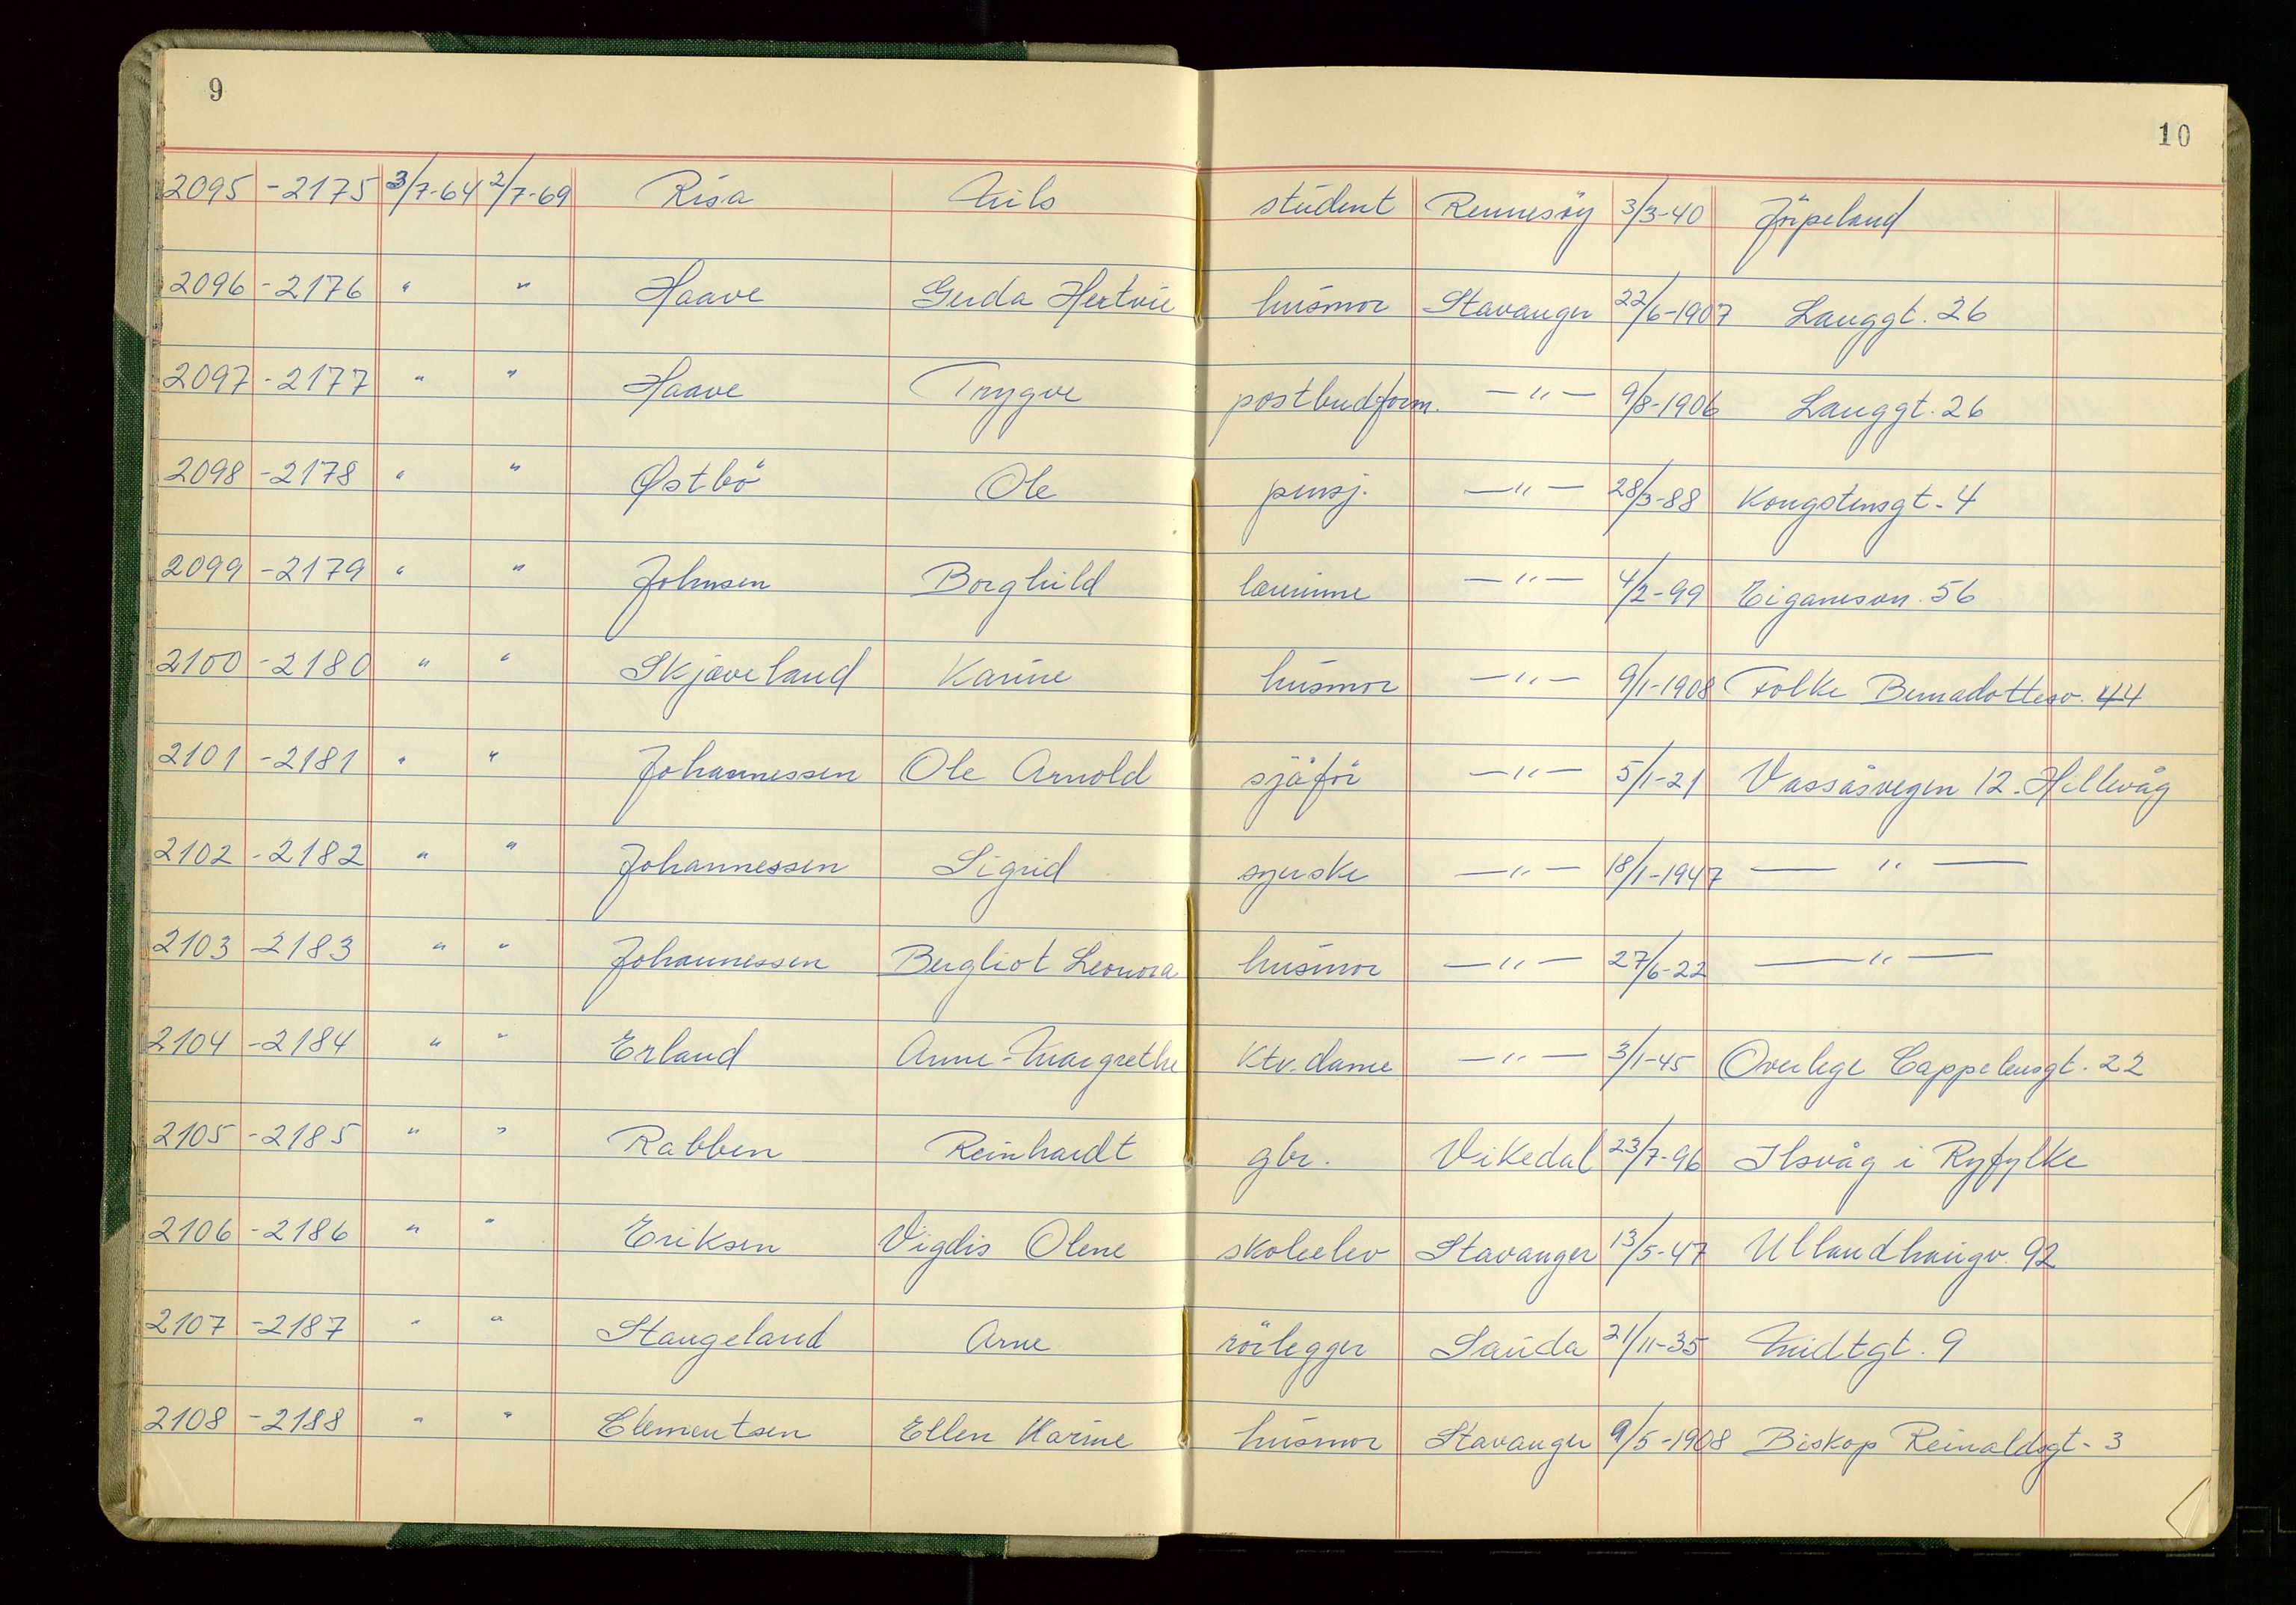 9
10
2095 -2175 3/7-64 2/7-69 Risa Nils student Rennesöy 3/3-40 Jörpeland
2096 -2176 " " Haave Gerda Hertvie husmor Stavanger 22/6-1907 Langgt. 26
2097 -2177 " " Haave Trygve postbudform. -"- 9/8-1906 Langgt. 26
2098 -2178 " " Østbö Ole pensj. -"- 28/3-88 Kongstensgt. 4
2099 -2179 " " Johnsen Borghild lærerinne -"- 4/2-99 Eiganesvn. 56
2100 -2180 " " Skjæveland Karine husmor -"- 9/1-1908 Folke Bernadottesv. 44
2101 -2181 " " Johannessen Ole Arnold sjåför -"- 5/1-21 Vassåsvegen 12. Hillevåg
2102 -2182 " " Johannessen Sigrid syerske -"- 18/1-1947 -"-
2103 -2183 " " Johannessen Bergliot Leonora husmor -"- 27/6-22 -"-
2104 -2184 " " Erland Anne-Margrethe ktr. dame -"- 3/1-45 Overlege Cappelensgt. 22
2105 -2185 " " Rabben Reinhardt gbr. Vikedal 23/7-96 Ilsvåg i Ryfylke
2106 -2186 " " Eriksen Vigdis Olene skoleelev Stavanger 13/5-47 Ullandhaugv. 92
2107 -2187 " " Stangeland Arne rörlegger Sauda 21/11-35 Midtgt. 9
2108 -2188 " " Clementsen Ellen Karine husmor Stavanger 9/5-1908 Biskop Reinaldsgt. 3